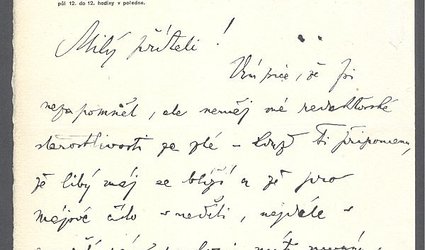 půl 12. do 12. hodiny v poledne.
Milý příteli!
že jsi
nezapomněl, ale neměj mé redaktorské
starostlivosti ze zlé – když Ti připomenu,
že libý máj se blíží a že pro
májové číslo nejdále